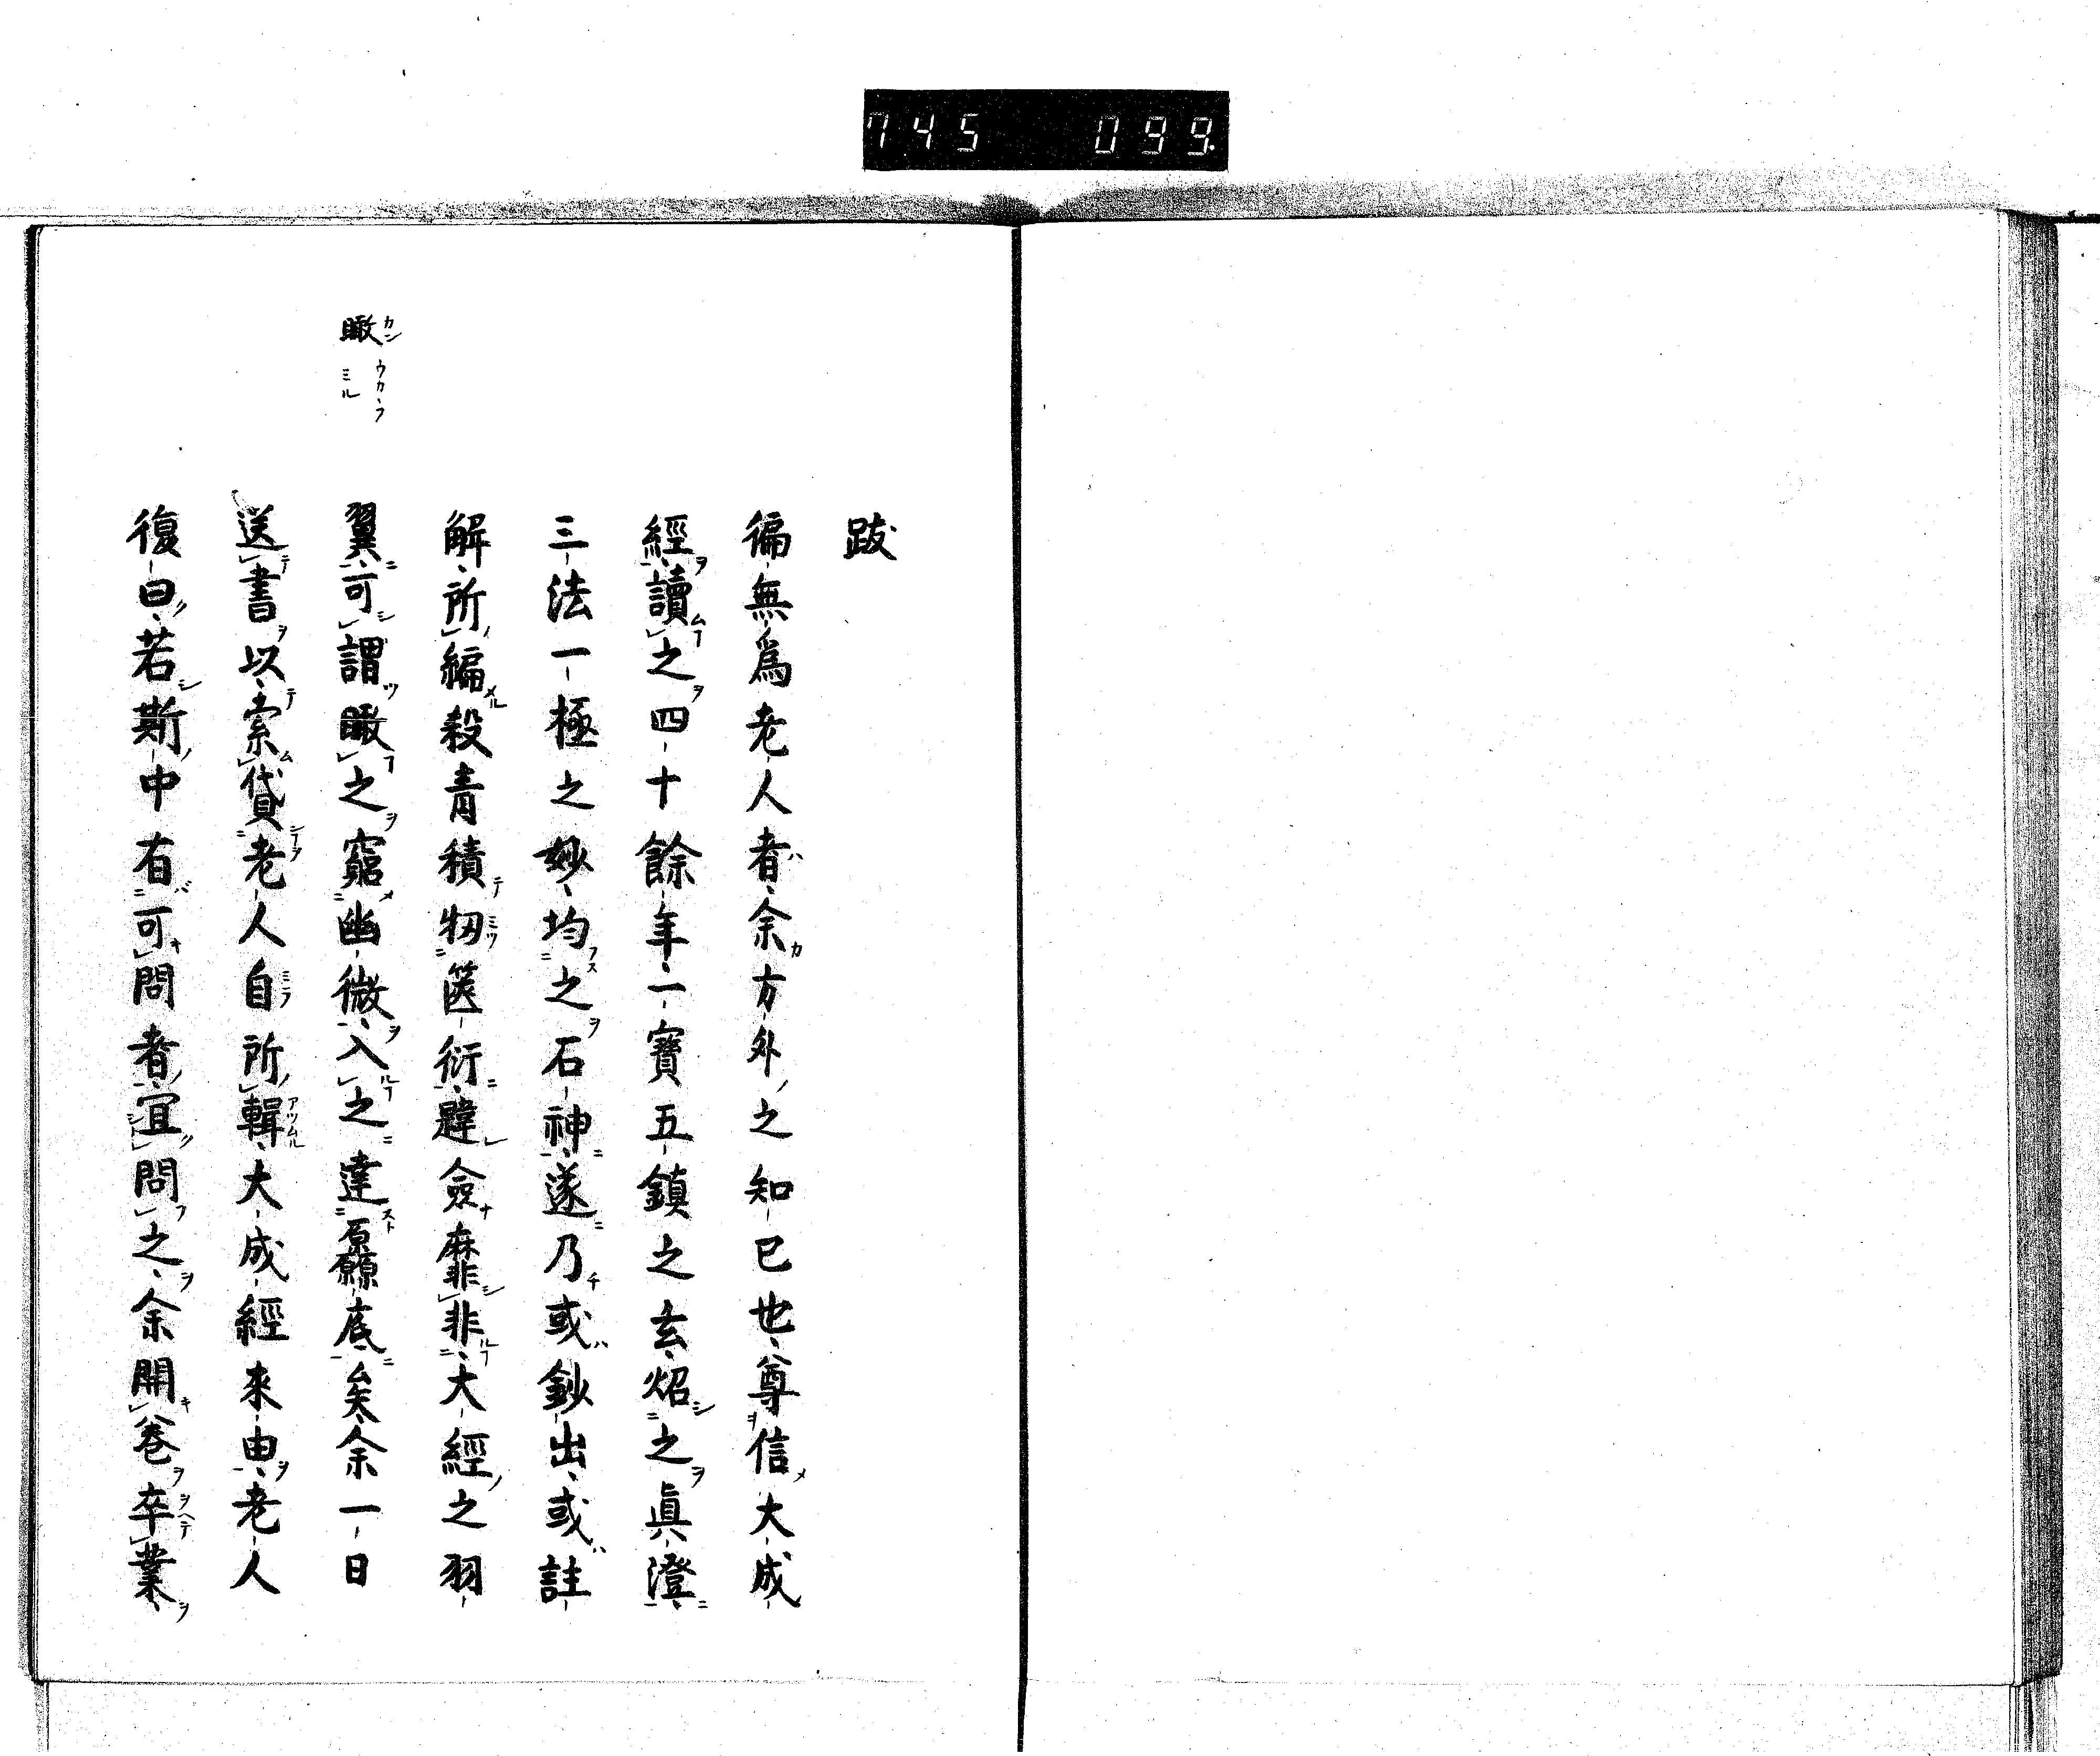 745 099.
跋
徧無為老人者余方外之知已也尊信大成
經讀之四十餘年一寶五鎮之玄炤之眞澄
三法一極之妙均之石神遂乃或鈔出或註
解所編殺青積牣篋衍韙僉靡非大經之羽
翼可謂瞰之窮幽微入之達原底矣余一日
送書以索貸老人自所輯大成經來由老人
復曰若斯中有可問者宜問之余開卷卒業
瞰 カン ウカヽフ ミル